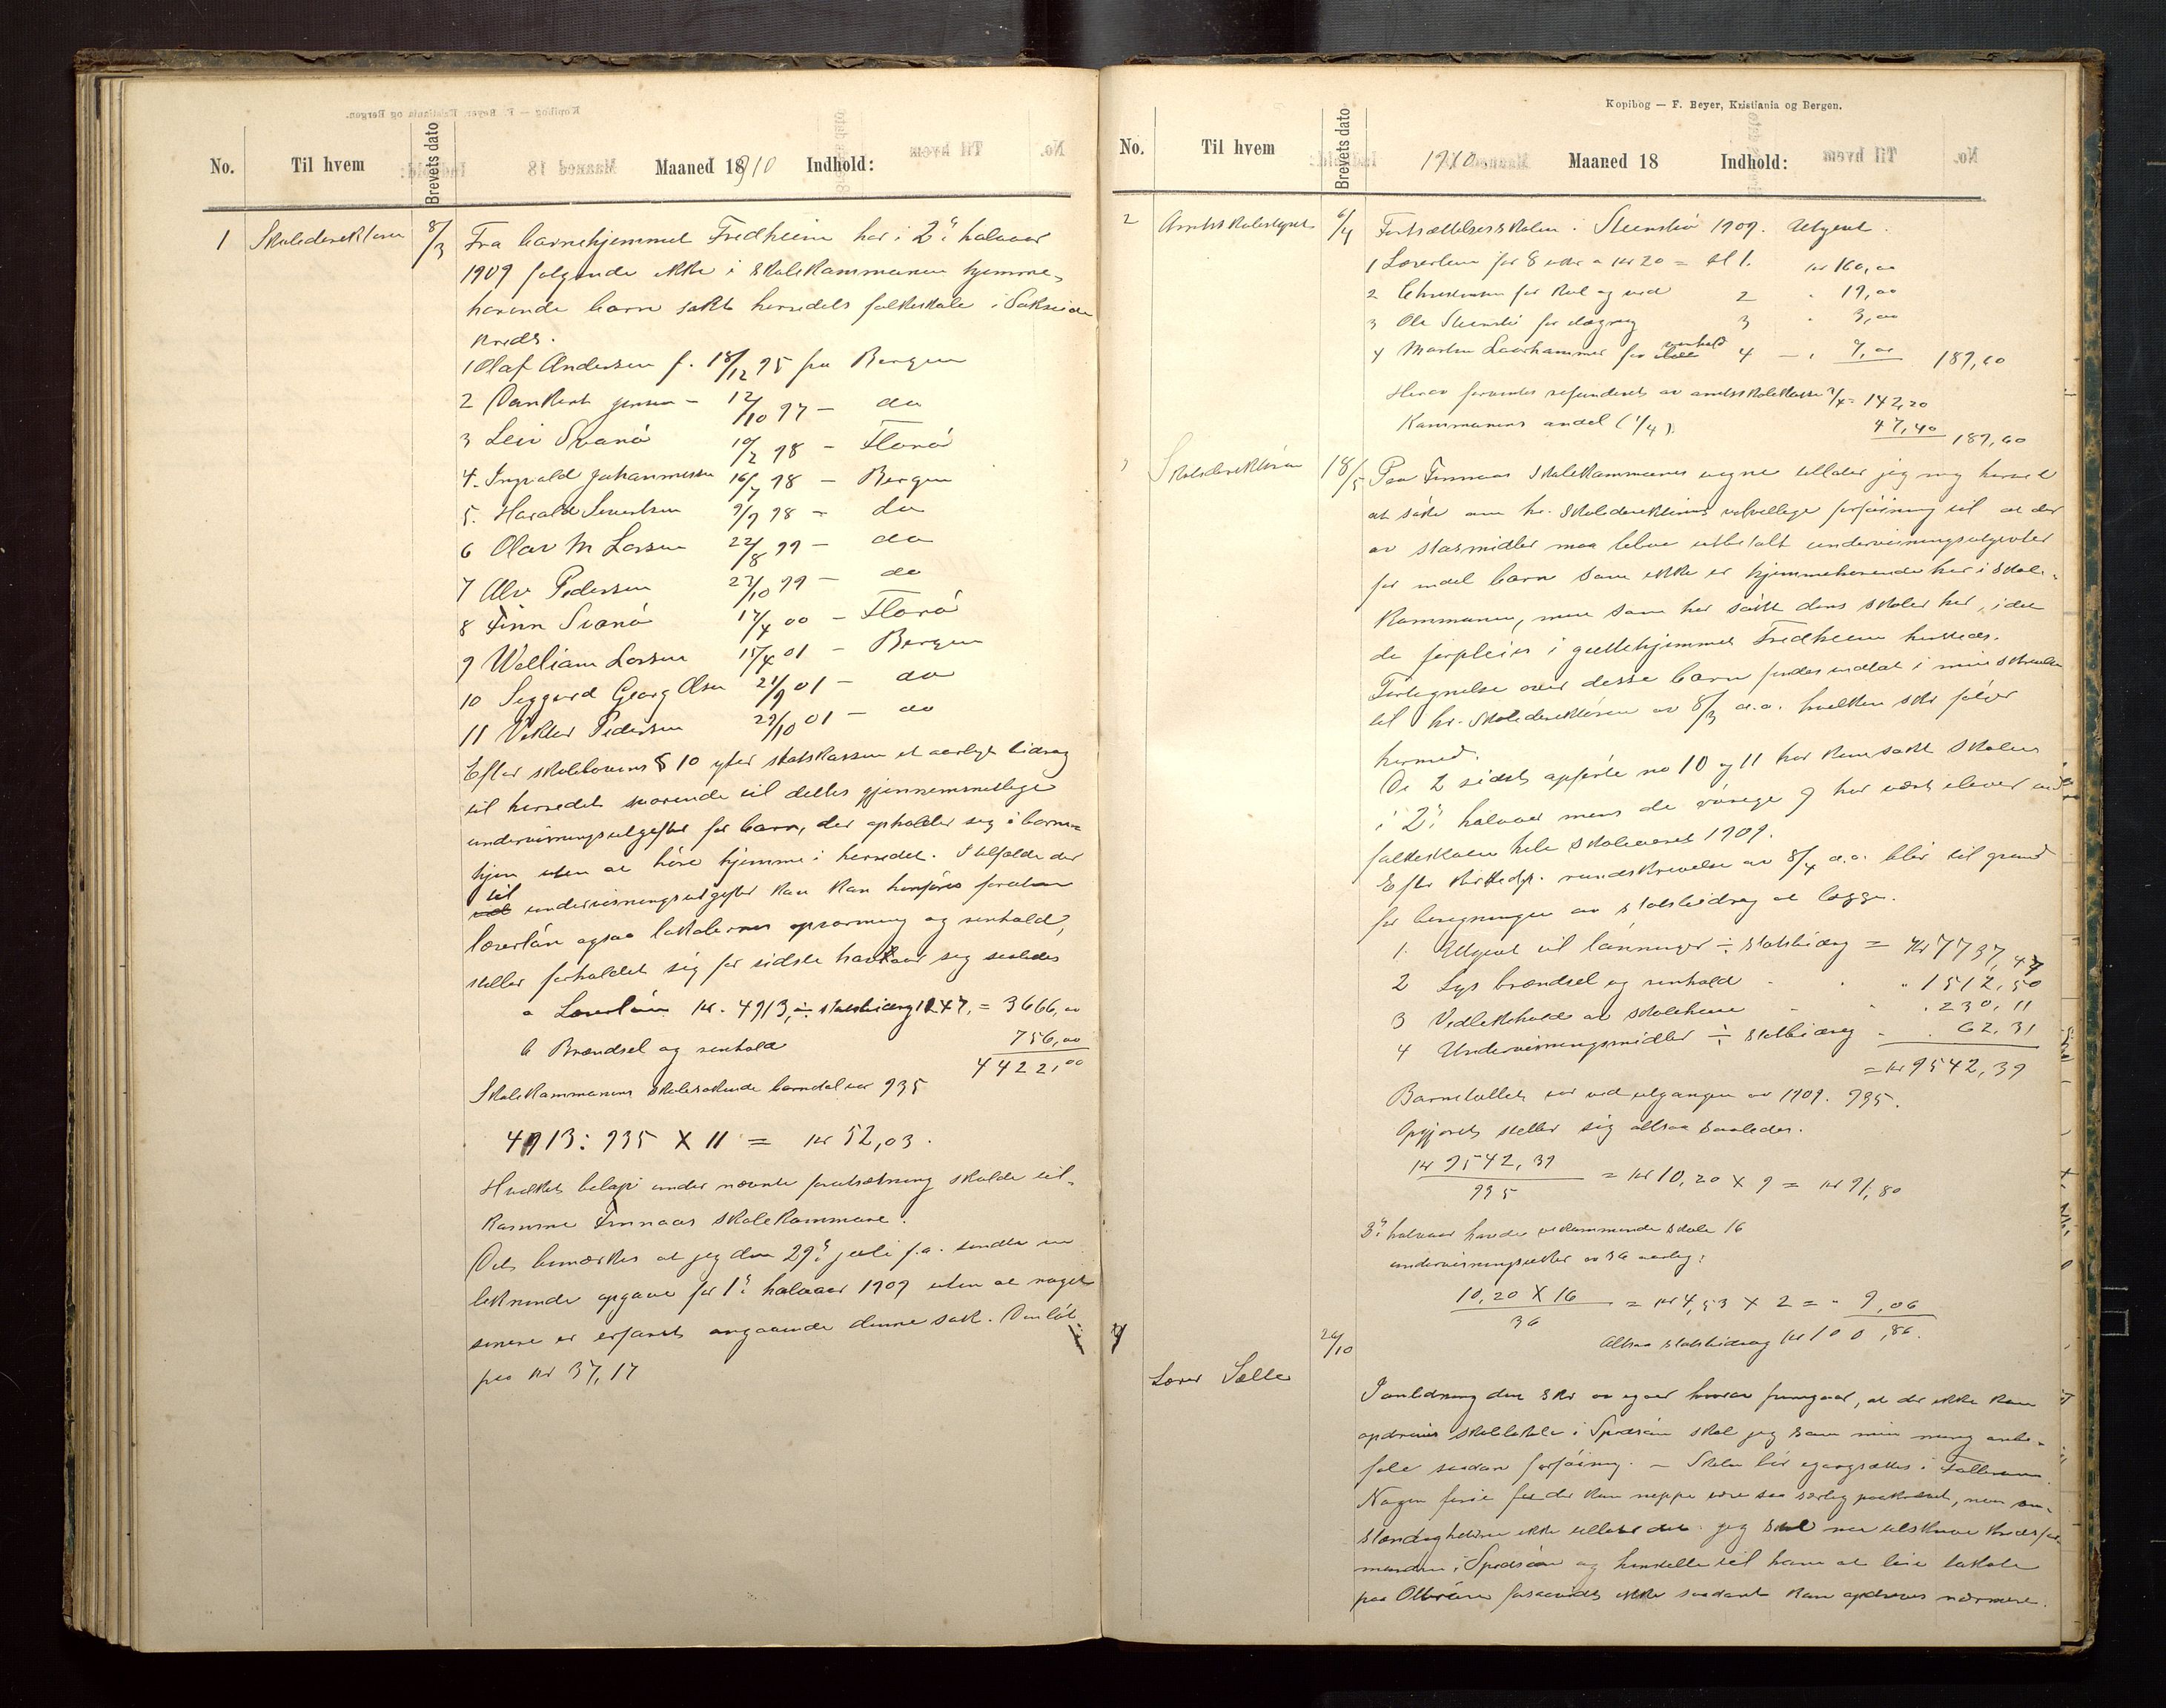 No. Til hvem Brevets dato Maaned 18 1910 Indhold:
1 Skoledirektøren 8/3 Fra barnehjemmet Fredheim har i 2det halvaar
1909 følgende ikke i skolekommunen hjemme-
hørende barn søkt herredets folkeskole i Sakseide
kreds.
1 Olaf Andersen f. 18/12 95 fra Bergen
2 Dankert Jensen – 12/10 97 – do
3 Leiv Svanø 19/2 98 – Florø
4. Ingvald Johannessen 16/7 98 – Bergen
5. Harald Sivertsen 9/9 98 – do
6 Olav M Larsen 22/8 99 – do
7 Alv Pedersen 23/10 99 – do
8 Finn Svanø 17/4 00 – Florø
9 William Larsen 15/4 01 – Bergen
10 Siggurd Georg Olsen 21/9 01 – do
11 Viktor Pedersen 29/10 01 – do
Efter skolelovens § 10 yter statskassen et aarlige bidrag
til herredet svarende til dettes gjennemsnitlige
undervisningsutgifter for barn, der opholder sig i barne-
hjem uten at høre hjemme i herredet. I tilfælde der
til undervisningsutgifter kan kan henføres foruten
lærerløn ogsaa lokalernes opvarming og renhold,
stiller forholdet sig for sidste halvaar sig saaledes
a Lærerløn kr. 4913, ÷ statsbidrag 1247, = 3666,00
b Brændsel og renhold 756,00
4422,00
Skolekommunens skolesøkende barnetal var 935
4913 : 935 X 11 = kr 52,03.
Hvilket beløp under nævnte forutsætning skulde til-
komme Finnaas skolekommune.
Det bemerkes at jeg den 29de juli f.a. sendte en
liknende opgave for 1ste halvaar 1909 uten at noget
senere er erfaret angaaende denne sak. Den lød
paa kr 37,17
Kopibog — F. Beyer, Kristiania og Bergen.
No. Til hvem Brevets dato 1910. Maaned 18 Indhold:
2 Amtsskolestyret 6/4 Fortsættelsesskolen i Steensbø 1909. Utgivt.
1 Lærerløn for 8 uker a kr 20 = bl 1. kr 160,00
2 for kul og ved 2 " 19,00
3 Ole Steensbø for 3 " 3,00
4 Martha for renhold 4 – " 7,00 189,60
Herav forventes refunderet av amtsskolekassen 3/4 = 142,20
Kommunens andel (1/4). 47,40 189,60
3 Skoledirektøren 18/5 Paa Finnaas skolekommunes vegne tillater jeg mig herved
at søke om hr. skoledirektørens velvillige forføining til at der
av statsmidler maa bli utbetalt undervisningsutgivter
for endel barn som ikke er hjemmehørende her i skole-
kommunen, men som har søkt dens skoler her, idet
de forpleies i guttehjemmet Fredheim hersteds.
Fortegnelse over disse barn findes indtat i min skrivelse
til hr. skoledirektøren av 8/3 d.a. hvilken skr følger
hermed.
De 2 sidst opførte no 10 og 11 har kun søkt skolen
i 2det halvaar mens de øvrige 9 har vært elever ved
folkeskolen hele skoleaaret 1909.
Efter kirkedep. rundskrivelse av 8/4 d.a. blir til grund
for beregningen av statsbidrag at lægge.
1. Utgivt til lønninger ÷ statsbidrag = kr 7737,47
2 Lys brændsel og renhold " " " 1512,50
3 Vedlikehold av skolehuse " " " 230,11
4 Undervisningsmidler ÷ statsbidrag " " 62,31
= kr 9542,39
Barnetallet var ved utgangen av 1909. 935.
Opgjøret stiller sig altsaa saaledes.
kr 9542,39
935 = kr 10,20 X 9 = kr 91,80
2det halvaar havde vedkommende skole 16
undervisningsuker av 36 aarlig:
10,20 X 16
36 = kr 4,53 X 2 = " 9,06
Altsaa statsbidrag kr 100,86.
4 Lærer Sælle 26/10
I anledning din skr av igaar hvorav fremgaar, at der ikke kan
opdrives skolelokale i Spidsøen skal jeg som min mening anbe-
fale saadan forføining. – Skolen bør igangsættes i
Nogen ferie før der kan neppe være saa særlig paakrævet, men om-
stændigheterne ikke tillater det. Jeg skal nu tilskrive kredsfor-
manden i Spidsøen og henstille til ham at leie lokale
paa forsaavidt ikke saadant kan opdrives nærmere.